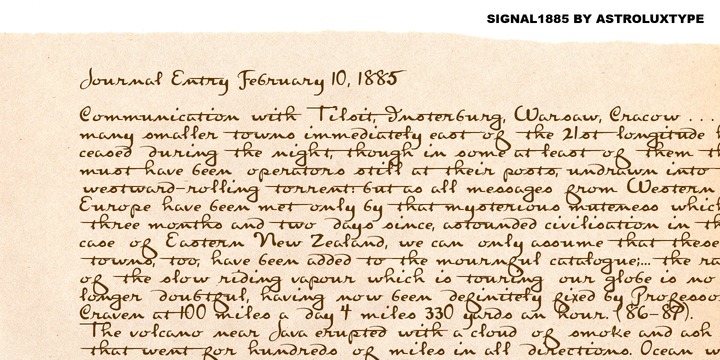 SIGNAL1885 BY ASTROLUXTYPE
Journal Entry February 10, 1885
Communication with Tilsit, Insterburg, Warsaw, Cracow . . .
many smaller towns immediately east of the 21st longitude h
ceased during the night, though in some at least of them th
must have been operators still at their posts, undrawn into
westward-rolling torrent: but as all messages from Western
Europe have been met only by that mysterious muteness which
three months and two days since, astounded civilisation in th
case of Eastern New Zealand, we can only assume that these
towns, too, have been added to the mournful catalogue;... the ra
of the slow riding vapour which is touring our globe is no
longer doubtful, having now been definitely fixed by Professo
Craven at 100 miles a day 4 miles 330 yards an hour. (86-87).
The volcano near Java erupted with a cloud of smoke and ash
that went for hundreds of miles in all directions Ocean w